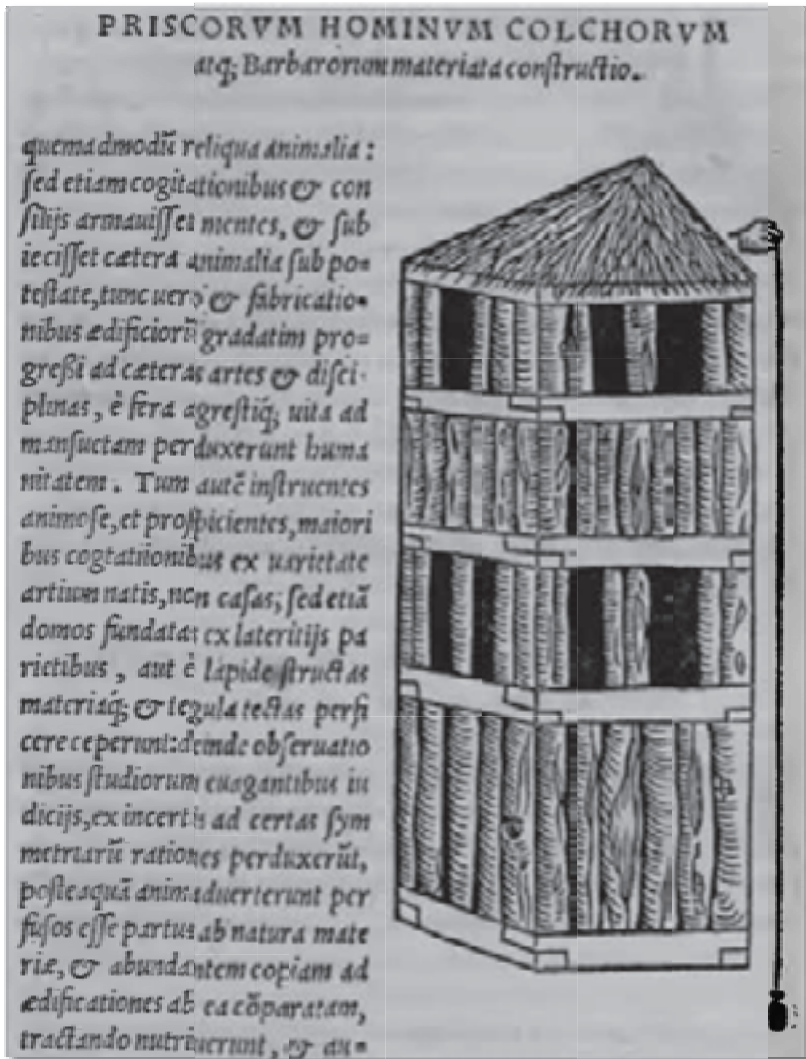 PRISCORVM HOMINVM COLCHORVM
atq; Barbarorum materiata constructio.
quemadmodū reliqua animalia:
sed etiam cogitationibus & con
silijs armauisset mentes, & sub
iecisset cætera animalia sub po=
testate, tunc uero & fabricatio=
nibus ædificiorū gradatim pro=
gressi ad cæteras artes & disci-
plinas, è fera agrestiq; uita ad
mansuetam perduxerunt huma
nitatem. Tum autē instruentes
animose, et prospicientes, maiori
bus cogtatiionibus ex uarietate
artium natis, non casas, sed etiā
domos fundatas ex lateritijs pa
rietibus, aut è lapide structas
materiaq; & tegula tectas perfi
cere ceperunt: deinde obseruatio
nibus studiorum euagantibus iu
dicijs, ex incertis ad certas sym
metriarū rationes perduxerūt,
posteaquā animaduerterunt per
fusos esse partus ab natura mate
riæ, & abundantem copiam ad
ædificationes ab ea cōparatam,
tractando nutriuerunt, & au=